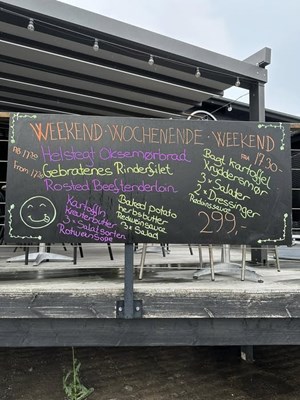 WEEKEND · WOCHENENDE · WEEKEND
Helstegt Oksemørbrad
Gebratenes Rinderfilet
Rosted Beeftenderloin
17.30
Bagt kartoffel
Kryddersmør
3 x Salater
2 x Dressinger
Rødvinssauce
299,-
Kartoffln
Kreuterbutter
3 x Salatsorten
Rotweinsose
Baked potato
herbsbutter
Redwinsauce
3 x Salad